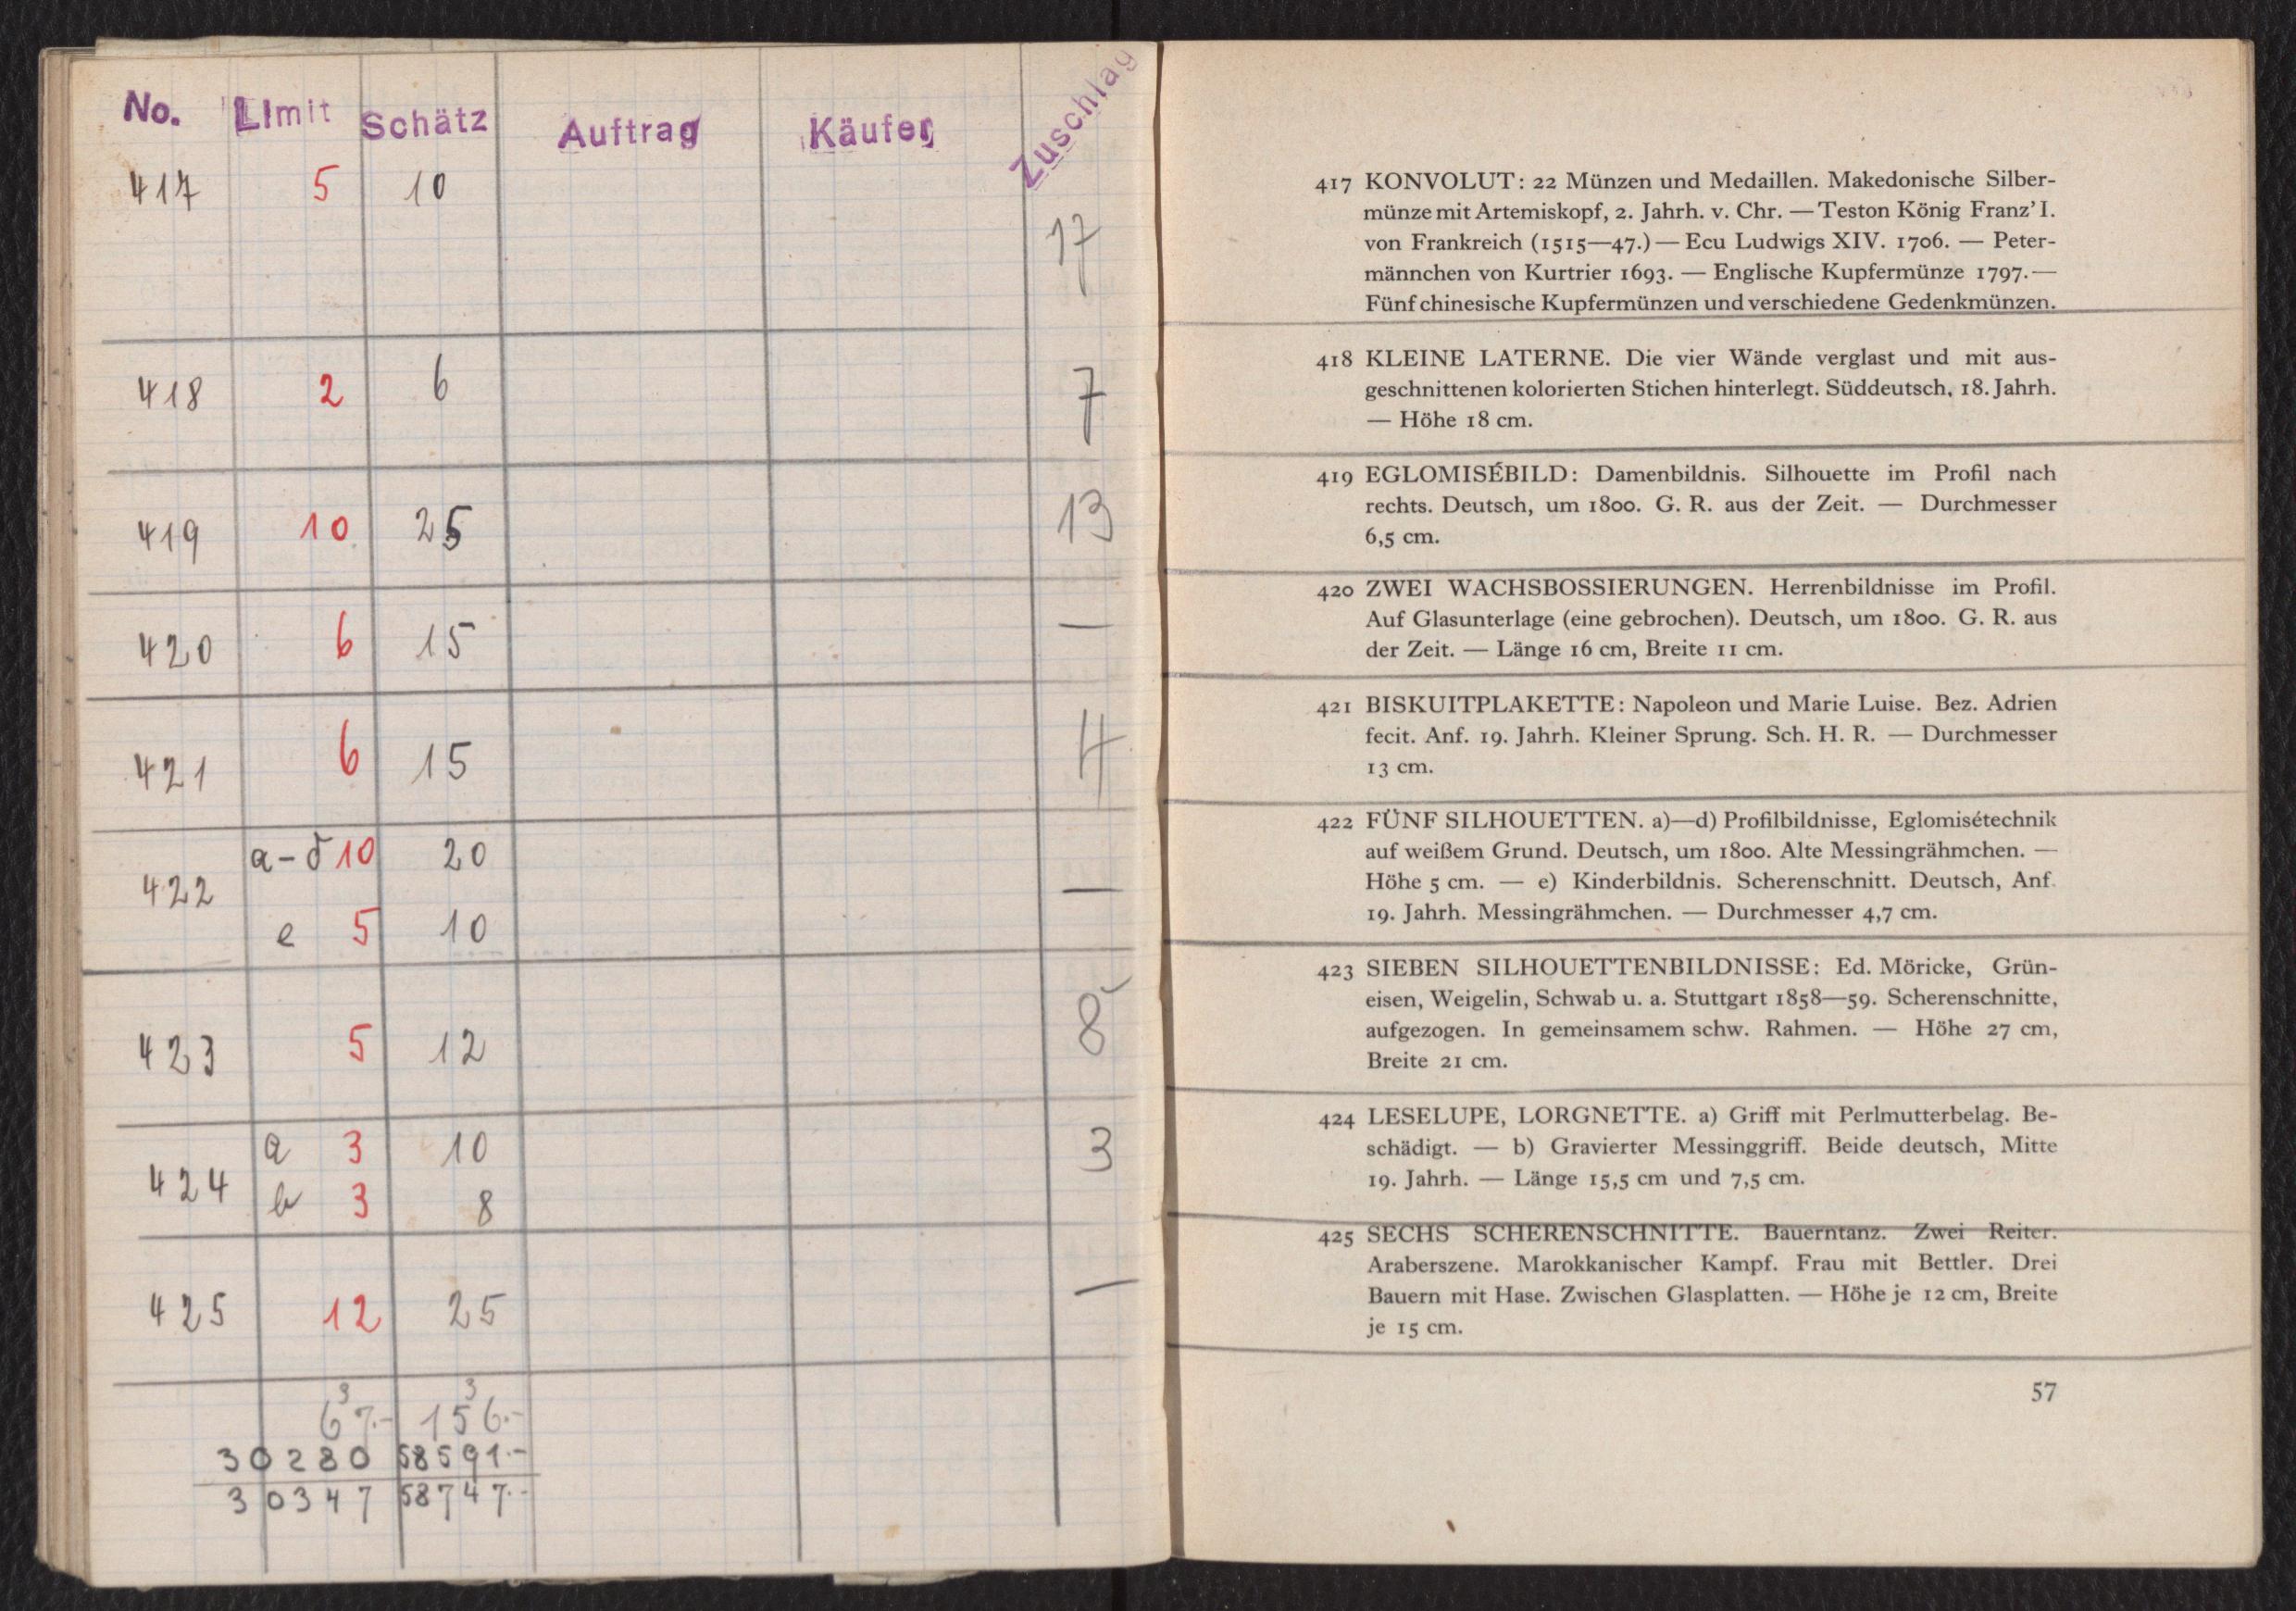 No. Limit Schätz Auftrag Käufer Zuschlag
417 5 10 17
418 2 6 7
419 10 25 13
420 6 15 —
421 6 15 4
422 a-d 10 20 —
e 5 10
423 5 12 8
424 a 3 10 3
b 3 8
425 12 25 —
3 3
67.- 156.-
30280 58591.-
30347 58747.-
417 KONVOLUT: 22 Münzen und Medaillen. Makedonische Silber-
münze mit Artemiskopf, 2. Jahrh. v. Chr. — Teston König Franz' I.
von Frankreich (1515—47.) — Ecu Ludwigs XIV. 1706. — Peter-
männchen von Kurtrier 1693. — Englische Kupfermünze 1797. —
Fünf chinesische Kupfermünzen und verschiedene Gedenkmünzen.
418 KLEINE LATERNE. Die vier Wände verglast und mit aus-
geschnittenen kolorierten Stichen hinterlegt. Süddeutsch, 18. Jahrh.
— Höhe 18 cm.
419 EGLOMISÉBILD: Damenbildnis. Silhouette im Profil nach
rechts. Deutsch, um 1800. G. R. aus der Zeit. — Durchmesser
6,5 cm.
420 ZWEI WACHSBOSSIERUNGEN. Herrenbildnisse im Profil.
Auf Glasunterlage (eine gebrochen). Deutsch, um 1800. G. R. aus
der Zeit. — Länge 16 cm, Breite 11 cm.
421 BISKUITPLAKETTE: Napoleon und Marie Luise. Bez. Adrien
fecit. Anf. 19. Jahrh. Kleiner Sprung. Sch. H. R. — Durchmesser
13 cm.
422 FÜNF SILHOUETTEN. a)—d) Profilbildnisse, Eglomisétechnik
auf weißem Grund. Deutsch, um 1800. Alte Messingrähmchen. —
Höhe 5 cm. — e) Kinderbildnis. Scherenschnitt. Deutsch, Anf.
19. Jahrh. Messingrähmchen. — Durchmesser 4,7 cm.
423 SIEBEN SILHOUETTENBILDNISSE: Ed. Möricke, Grün-
eisen, Weigelin, Schwab u. a. Stuttgart 1858—59. Scherenschnitte,
aufgezogen. In gemeinsamem schw. Rahmen. — Höhe 27 cm,
Breite 21 cm.
424 LESELUPE, LORGNETTE. a) Griff mit Perlmutterbelag. Be-
schädigt. — b) Gravierter Messinggriff. Beide deutsch, Mitte
19. Jahrh. — Länge 15,5 cm und 7,5 cm.
425 SECHS SCHERENSCHNITTE. Bauerntanz. Zwei Reiter.
Araberszene. Marokkanischer Kampf. Frau mit Bettler. Drei
Bauern mit Hase. Zwischen Glasplatten. — Höhe je 12 cm, Breite
je 15 cm.
57